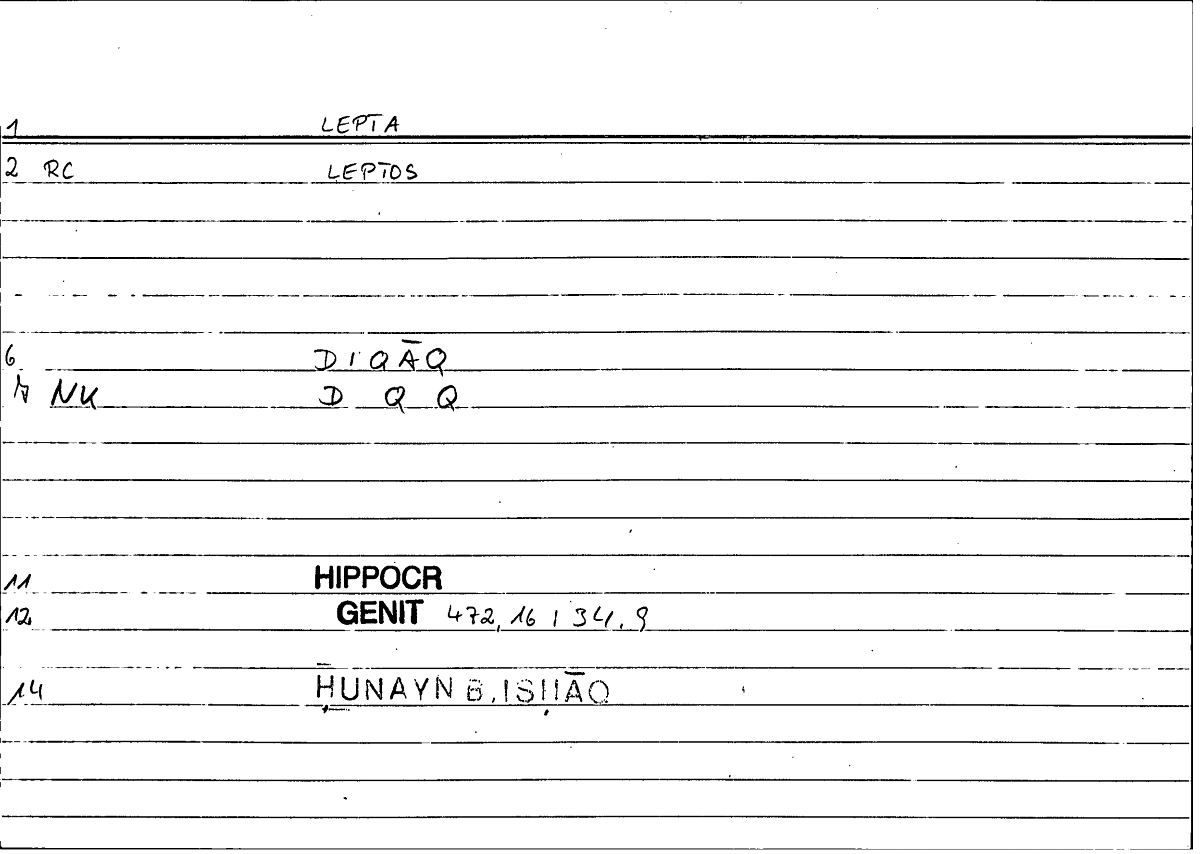 1 LEPTA
2 RC LEPTOS
6 DIQĀQ
7 NK D Q Q
11 HIPPOCR
12 GENIT 472,16 / 34,9
14 ḤUNAYN B. ISḤĀQ